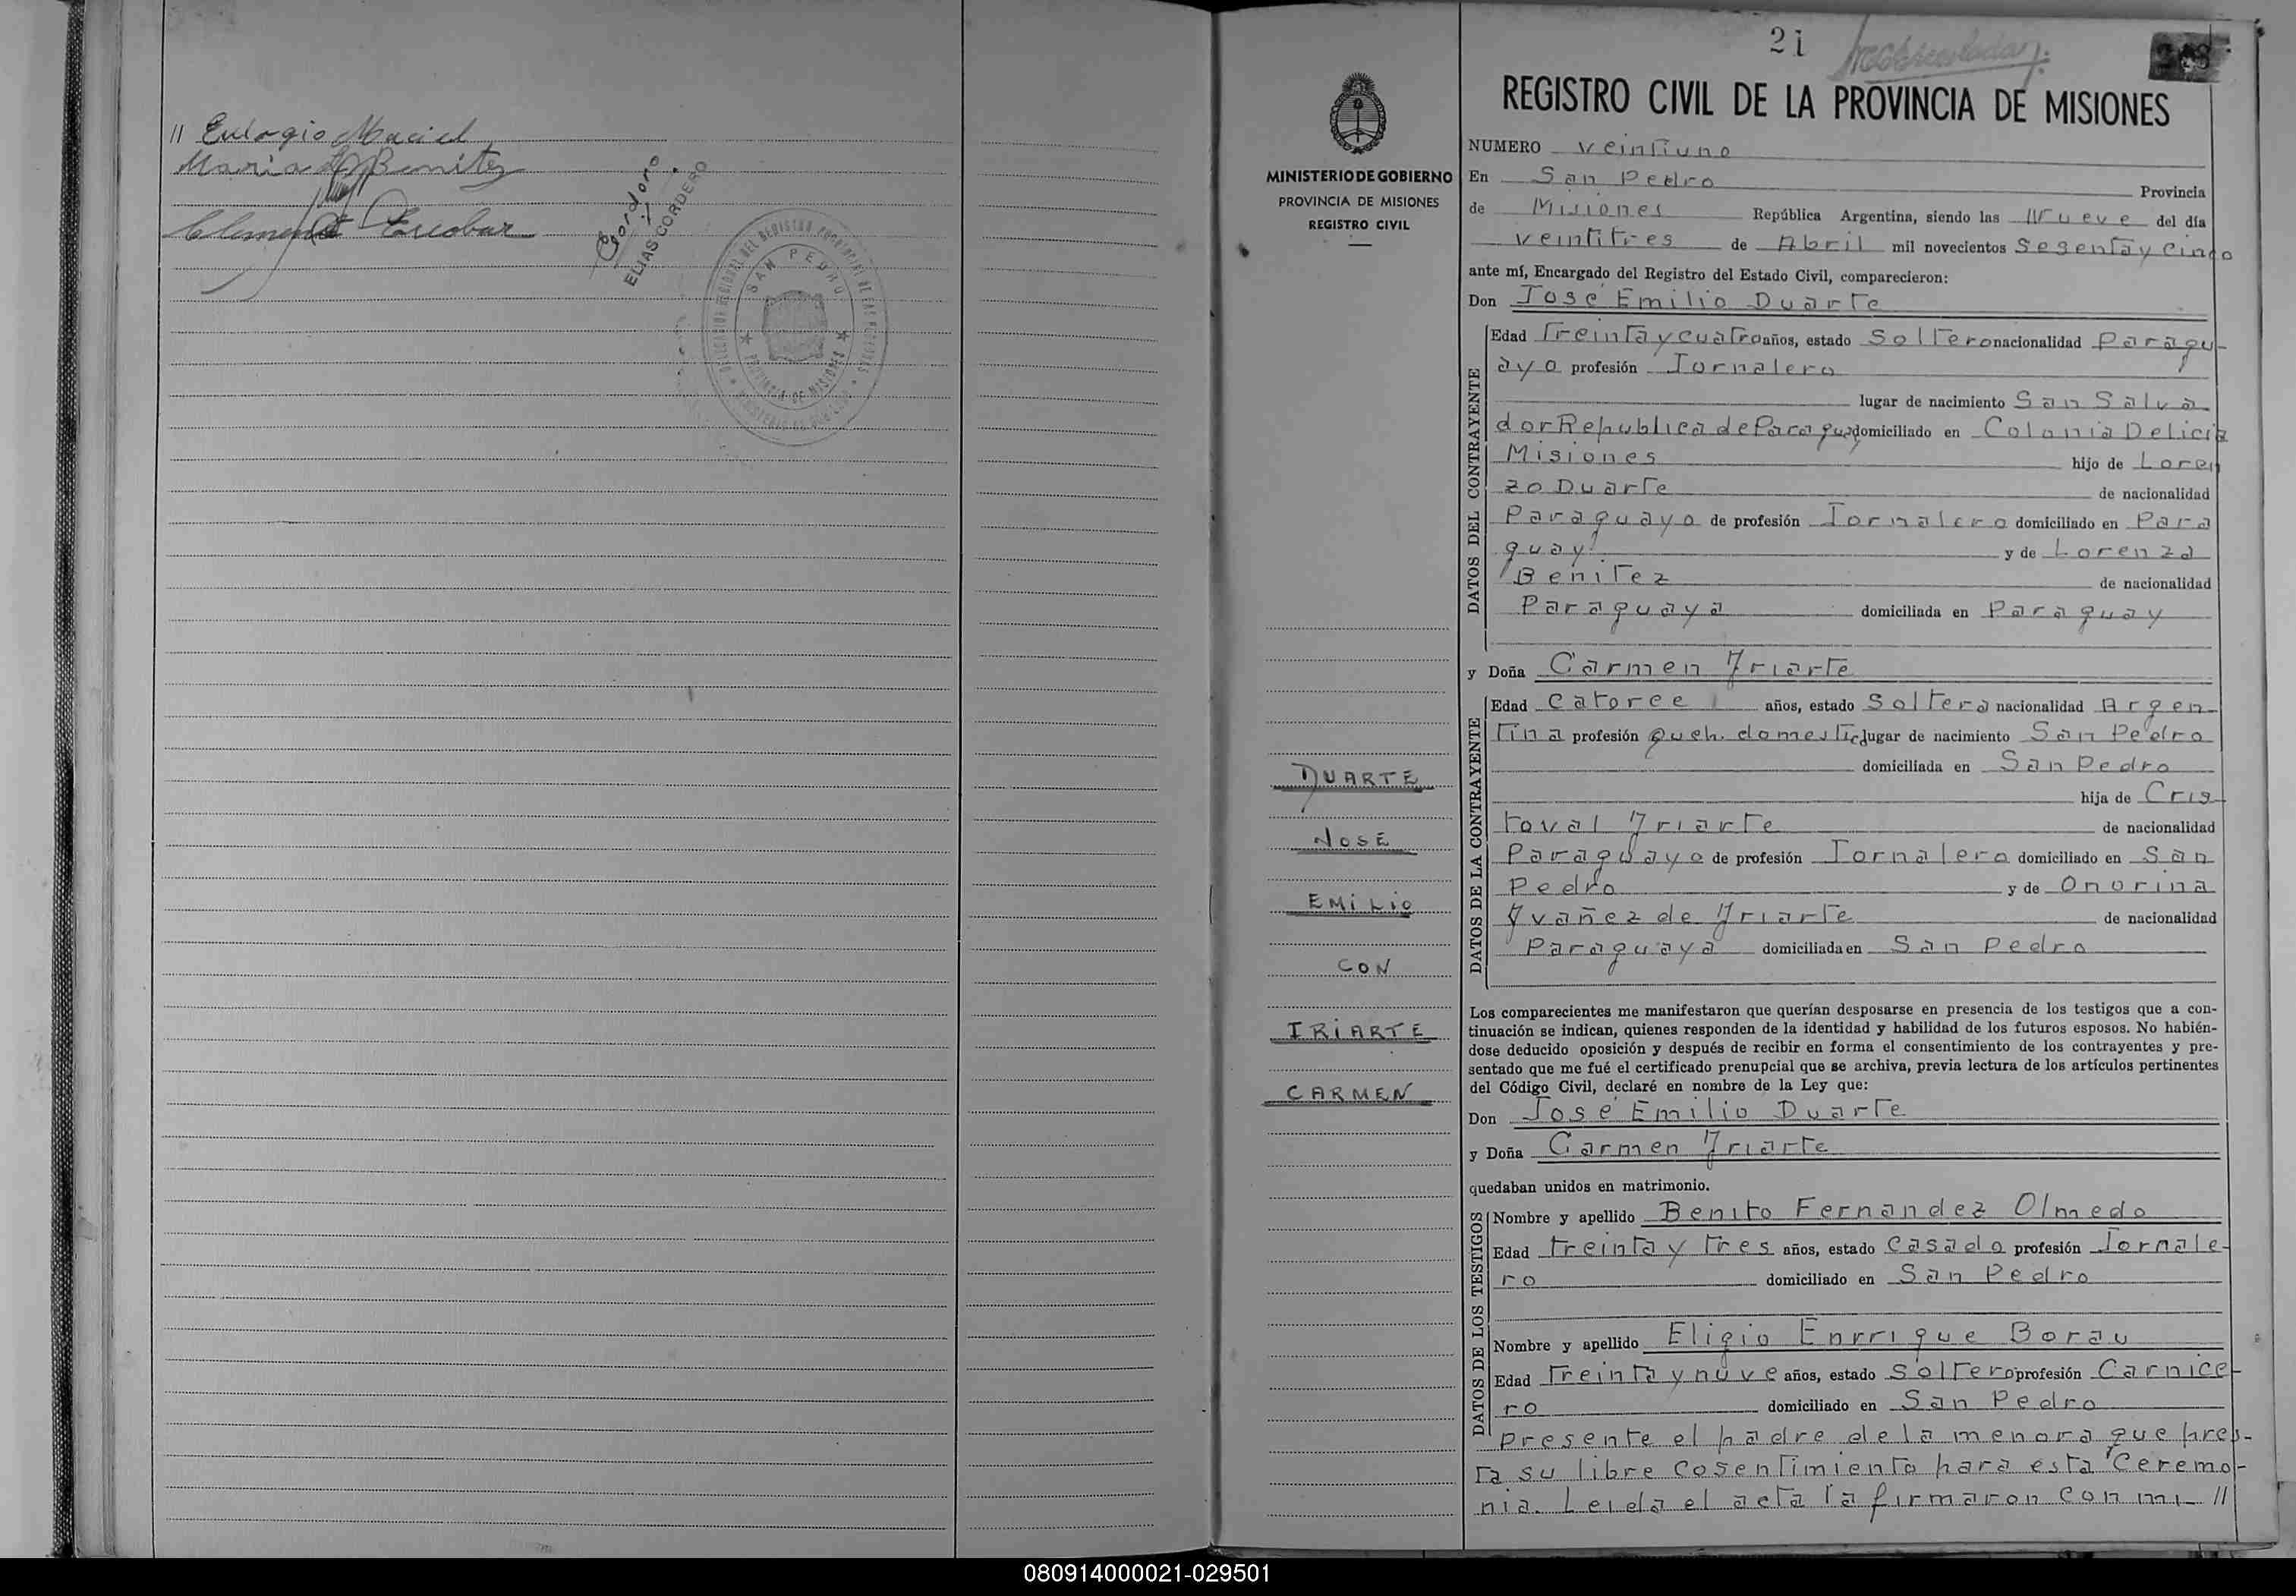 // Eulogio Maciel
Maria L Benitez
Clemente Escobar
Cordero
ELIAS CORDERO
DELEGACION REGIONAL DEL REGISTRO PROVINCIAL DE LAS PERSONAS
SAN PEDRO
PROVINCIA DE MISIONES
MINISTERIO DE GOBIERNO
PROVINCIA DE MISIONES
REGISTRO CIVIL
DUARTE
JOSE
EMILIO
CON
IRIARTE
CARMEN
21
REGISTRO CIVIL DE LA PROVINCIA DE MISIONES
NUMERO veintiuno
En San Pedro Provincia
de Misiones República Argentina, siendo las Nueve del día
veintitres de Abril mil novecientos Sesenta y Cinco
ante mí, Encargado del Registro del Estado Civil, comparecieron:
Don José Emilio Duarte
DATOS DEL CONTRAYENTE
Edad Treinta y cuatro años, estado Soltero nacionalidad Paragu-
ayo profesión Jornalero
lugar de nacimiento San Salva
dor Republica de Paraguay domiciliado en Colonia Delicia
Misiones hijo de Loren
zo Duarte de nacionalidad
Paraguayo de profesión Jornalero domiciliado en Para
guay y de Lorenza
Benitez de nacionalidad
Paraguaya domiciliada en Paraguay
y Doña Carmen Yriarte
DATOS DE LA CONTRAYENTE
Edad Catorce años, estado Soltera nacionalidad Argen-
tina profesión queh. domestic lugar de nacimiento San Pedro
domiciliada en San Pedro
hija de Cris
toval Yriarte de nacionalidad
Paraguayo de profesión Jornalero domiciliado en San
Pedro y de Onorina
Yvañez de Yriarte de nacionalidad
Paraguaya domiciliada en San Pedro
Los comparecientes me manifestaron que querían desposarse en presencia de los testigos que a con-
tinuación se indican, quienes responden de la identidad y habilidad de los futuros esposos. No habién-
dose deducido oposición y después de recibir en forma el consentimiento de los contrayentes y pre-
sentado que me fué el certificado prenupcial que se archiva, previa lectura de los artículos pertinentes
del Código Civil, declaré en nombre de la Ley que:
Don José Emilio Duarte
y Doña Carmen Yriarte
quedaban unidos en matrimonio.
DATOS DE LOS TESTIGOS
Nombre y apellido Benito Fernandez Olmedo
Edad treinta y tres años, estado Casado profesión Jornale-
ro domiciliado en San Pedro
Nombre y apellido Eligio Enrrique Borau
Edad Treinta y nuve años, estado Soltero profesión Carnice-
ro domiciliado en San Pedro
Presente el padre de la menora que pres-
ta su libre cosentimiento para esta Ceremo-
nia. Leida el acta la firmaron con mi //
080914000021-029501